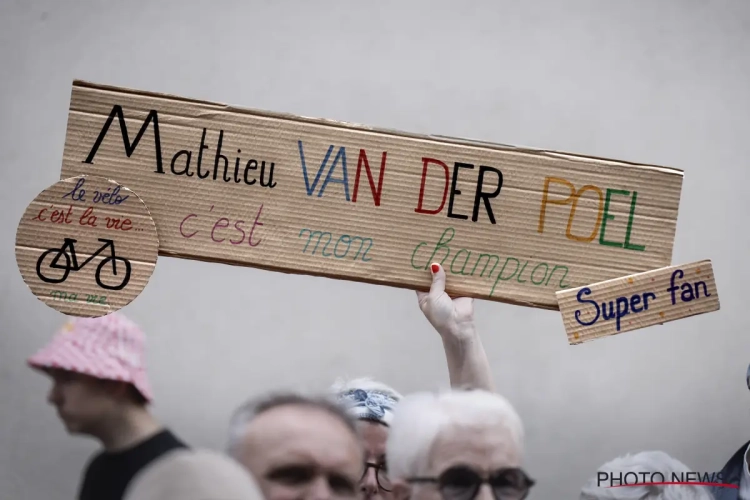 Mathieu VAN DER POEL
c'est mon champion
le vélo
c'est la vie...
ma vie
Super fan
PHOTO NEWS